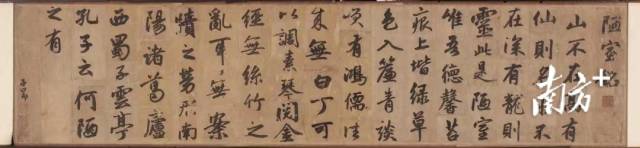 陋室銘
山不在高有
仙則名不
在深有龍則
靈此是陋室
惟吾德馨苔
痕上堦緑草
色入簾青談
笑有鴻儒往
来無白丁可
以調素琴閲金
經無絲竹之
亂耳無案
牘之勞形南
陽諸葛廬
西蜀子雲亭
孔子云何陋
之有
子昂
南方+